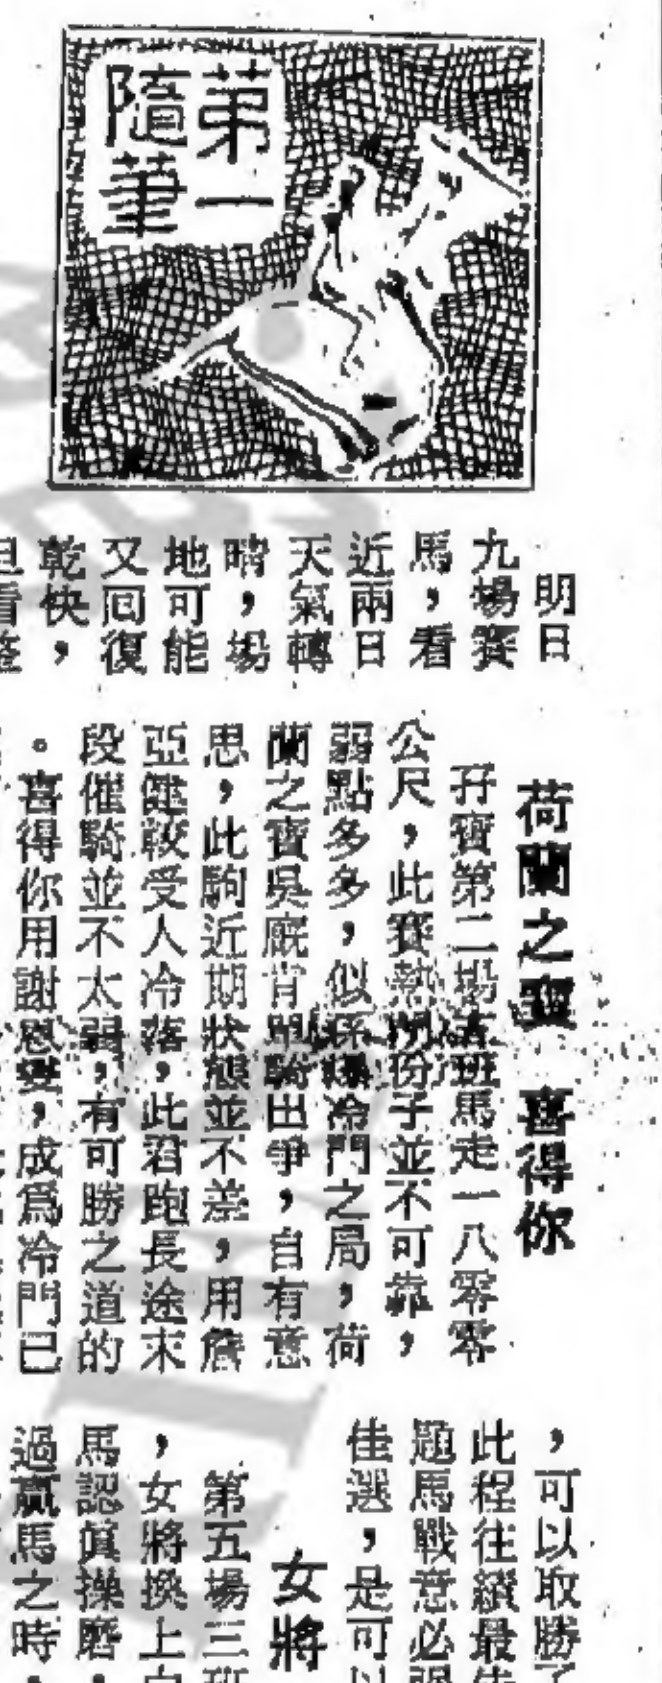 第一
隨筆
明日
九場賽
馬，看
近兩日
天氣轉
晴，場
地可能
又回復
乾快，
且看
荷蘭之寶　喜得你
孖寶第二場班馬走一八零零
公尺，此賽熱門份子並不可靠，
弱點多多，似係爆冷門之局，荷
蘭之寶吳廐肯單騎出爭，自有意
思，此駒近期狀態並不差，用詹
亞健較受人冷落，此君跑長途末
段催騎並不太弱，有可勝之道的
。喜得你用謝恩燮，成爲冷門已
，可以取勝了
此程往績最佳
題馬戰意必强
佳選，是可以
女將
第五場三班
，女將換上
馬認眞操磨，
過贏馬之時，